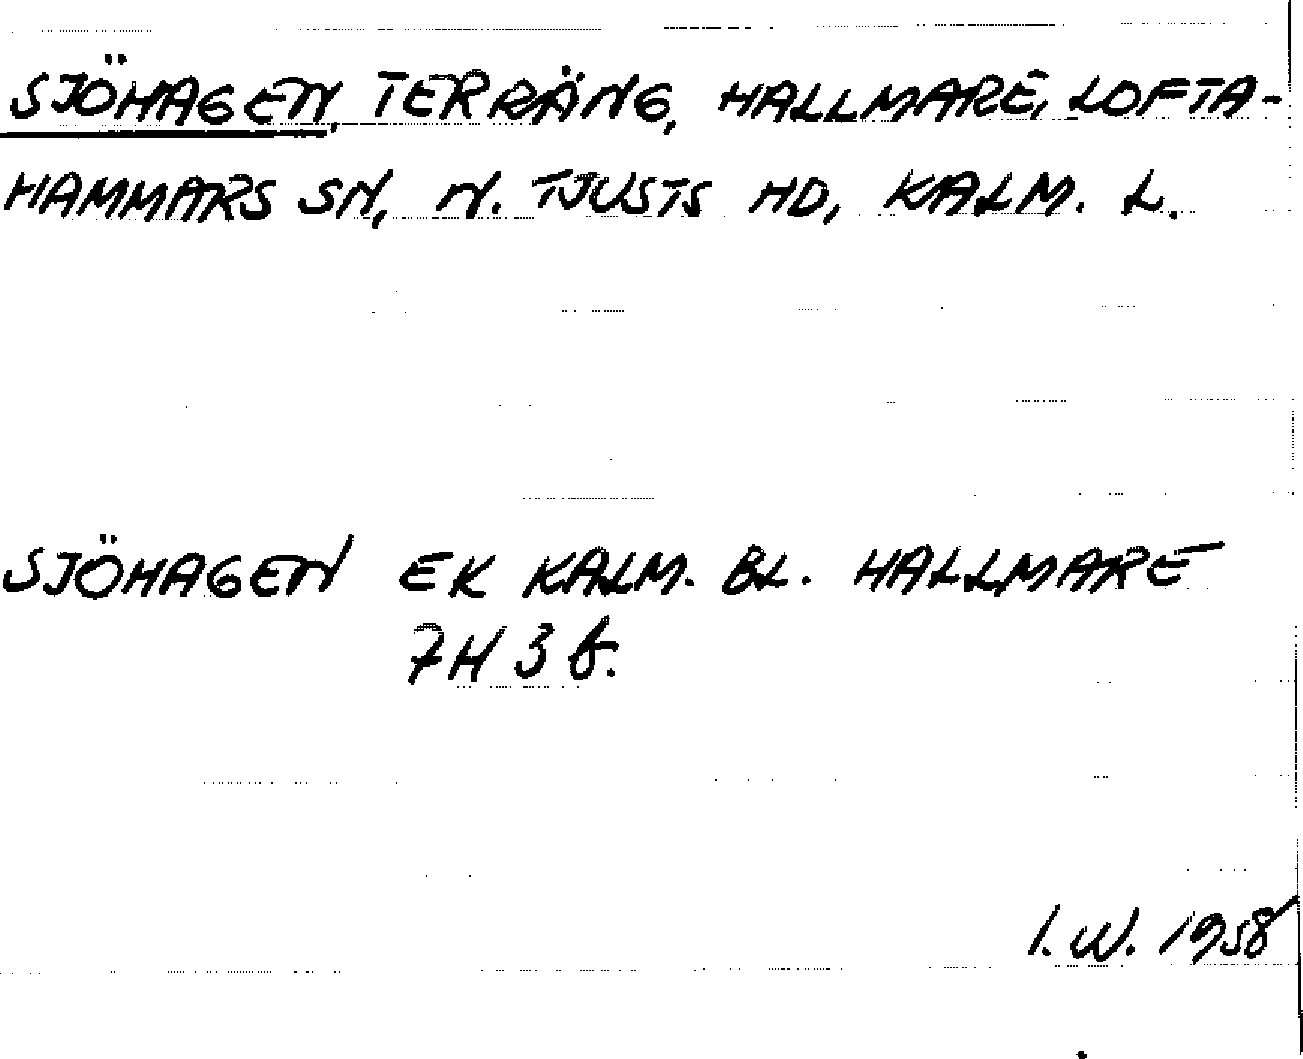 SJÖHAGEN, TERRÄNG, HALLMARE, LOFTA-
HAMMARS SN, N. TJUSTS HD, KALM. L.
SJÖHAGEN EK KALM. BL. HALLMARE
7H 3 b.
I. W. 1958